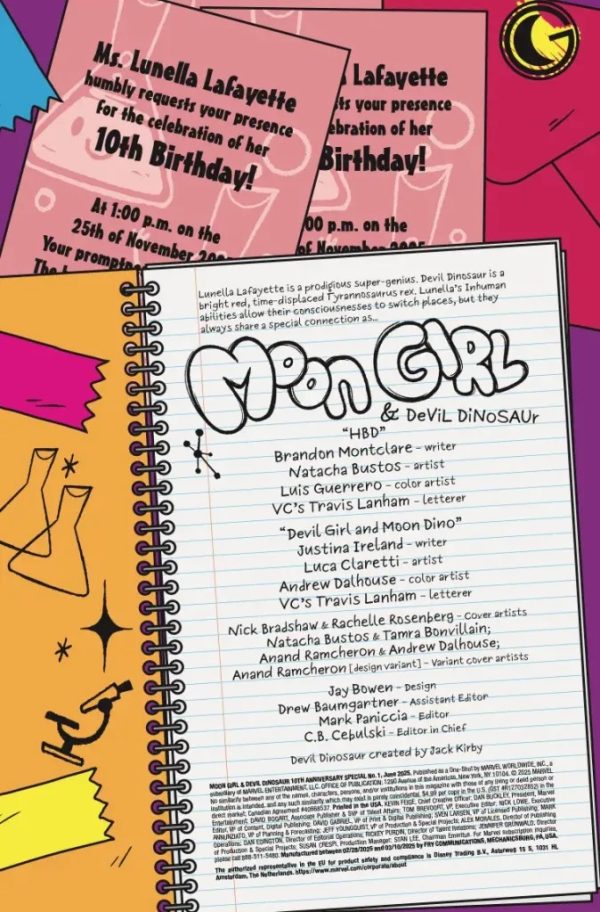 Ms. Lunella Lafayette
humbly requests your presence
for the celebration of her
10th Birthday!
At 1:00 p.m. on the
25th of November
Your prompt
Lafayette
ts your presence
ebration of her
Birthday!
00 p.m. on the
of November
Lunella Lafayette is a prodigious super-genius. Devil Dinosaur is a
bright red, time-displaced Tyrannosaurus rex. Lunella's Inhuman
abilities allow their consciousnesses to switch places, but they
always share a special connection as...
MOON GIRL
& DeViL DiNoSAUr
"HBD"
Brandon Montclare – writer
Natacha Bustos – artist
Luis Guerrero – color artist
VC's Travis Lanham – letterer
"Devil Girl and Moon Dino"
Justina Ireland – writer
Luca Claretti – artist
Andrew Dalhouse – color artist
VC's Travis Lanham – letterer
Nick Bradshaw & Rachelle Rosenberg – Cover artists
Natacha Bustos & Tamra Bonvillain;
Anand Ramcheron & Andrew Dalhouse;
Anand Ramcheron [design variant] – Variant cover artists
Jay Bowen – Design
Drew Baumgartner – Assistant Editor
Mark Paniccia – Editor
C.B. Cebulski – Editor in Chief
Devil Dinosaur created by Jack Kirby
MOON GIRL & DEVIL DINOSAUR 10TH ANNIVERSARY SPECIAL No. 1, June 2025. Published as a One-Shot by MARVEL WORLDWIDE, INC., a
subsidiary of MARVEL ENTERTAINMENT, LLC. OFFICE OF PUBLICATION: 1290 Avenue of the Americas, New York, NY 10104. © 2025 MARVEL
No similarity between any of the names, characters, persons, and/or institutions in this magazine with those of any living or dead person or
institution is intended, and any such similarity which may exist is purely coincidental. $4.99 per copy in the U.S.
direct market; Canadian Agreement #40668537. Printed in the USA. KEVIN FEIGE, Chief Creative Officer; DAN BUCKLEY, President, Marvel
Entertainment; DAVID BOGART, Associate Publisher & SVP of Talent Affairs; TOM BREVOORT, VP, Executive Editor; NICK LOWE, Executive
Editor, VP of Content, Digital Publishing; DAVID GABRIEL, VP of Print & Digital Publishing; SVEN LARSEN, VP of Licensed Publishing; MARK
ANNUNZIATO, VP of Planning & Forecasting; JEFF YOUNGQUIST, VP of Production & Special Projects; ALEX MORALES, Director of Publishing
Operations; DAN EDINGTON, Director of Editorial Operations; RICKEY PURDIN, Director of Talent Relations; JENNIFER GRÜNWALD, Director
of Production & Special Projects; SUSAN CRESPI, Production Manager; STAN LEE, Chairman Emeritus. For Marvel subscription inquiries,
please call 888-511-5480. Manufactured between 02/28/2025 and 03/10/2025 by FRY COMMUNICATIONS, MECHANICSBURG, PA, USA.
The authorized representative in the EU for product safety and compliance is Disney Trading B.V., Asterweg 15 S, 1031 HL
Amsterdam, The Netherlands. https://www.marvel.com/corporate/about